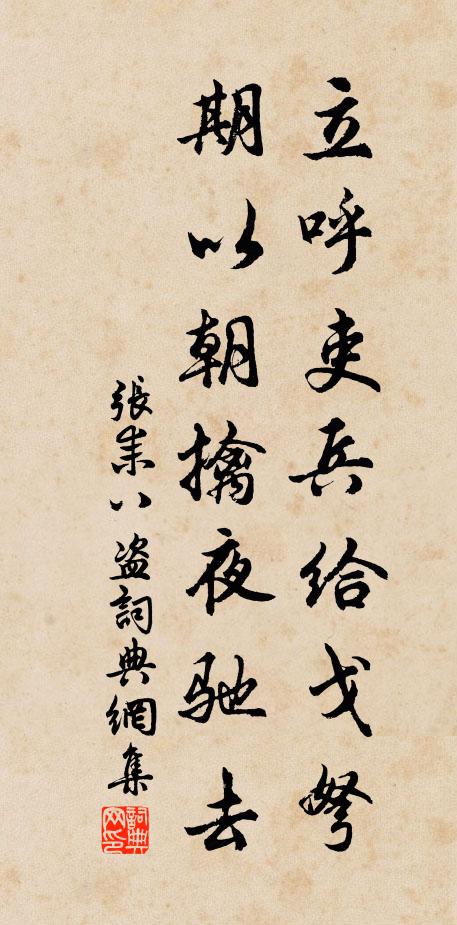 立呼吏兵給戈弩
期以朝擒夜馳去
張耒八盗詞典網集
詞典網印